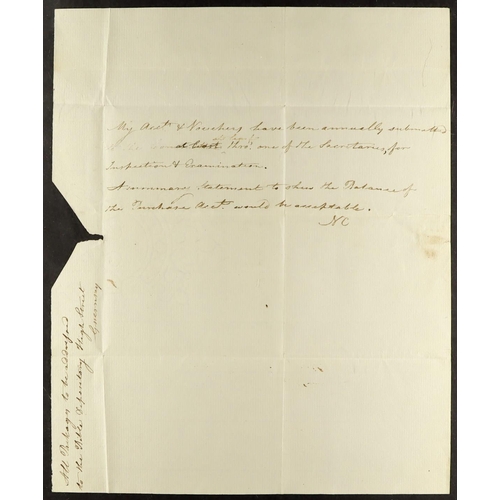 My Acct & Vouchers have been annually submitted
thro' one of the Secretaries, for
Inspection & Examination.
A summary Statement to shew the Balance of
the Purchase Acct. would be acceptable.
NC
All Packages to be addressed
to the Bible Depository High Street
Guernsey